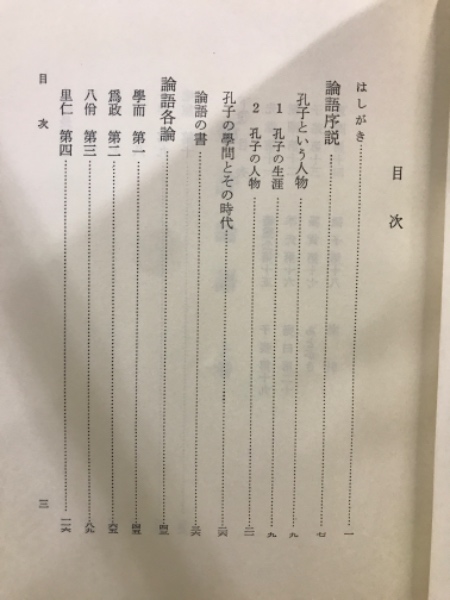 目次
はしがき……一
論語序説……七
孔子という人物……九
1 孔子の生涯……九
2 孔子の人物……二一
孔子の學問とその時代……二六
論語の書……三六
論語各論……四三
學而 第一……四五
爲政 第二……六五
八佾 第三……八九
里仁 第四……一一六
目次
三